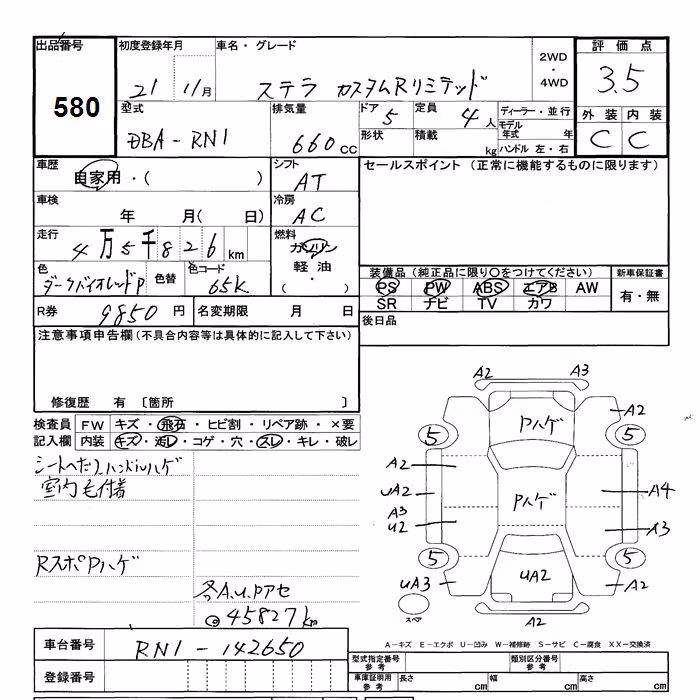 出品番号
580
初度登録年月
21 11月
車名・グレード
ステラ カスタムRリミテッド
2WD
・
4WD
評価点
3.5
外装 内装
C C
型式
DBA-RN1
排気量
660cc
ドア
5
定員
4人
形状
積載
kg
ディーラー・並行
モデル
年式 年
ハンドル 左・右
車歴
自家用・( )
シフト
AT
セールスポイント (正常に機能するものに限ります)
車検
年 月( 日)
冷房
AC
走行
4万5千826km
燃料
ガソリン
軽油・
( )
色
ダークバイオレットP
色替
色コード
65K
装備品 (純正品に限り○をつけてください)
PS PW ABS エアB AW
SR ナビ TV カワ
新車保証書
有・無
R券
9850円
名変期限 月 日
後日品
注意事項申告欄(不具合内容等は具体的に記入して下さい)
修復歴 有 〔箇所 〕
検査員
記入欄
FW キズ・飛石・ヒビ割・リペア跡・×要
内装 キズ・汚レ・コゲ・穴・スレ・キレ・破レ
シートへたり、ハンドルハゲ
室内毛付着
RスポPハゲ
各A.U.Pアセ
45827km
A2 A3
Pハゲ
A2
5 5
A2
UA2
A3
U2
Pハゲ
A4
A3
5 5
UA3
UA2
A2
スペア
A2
A-キズ E-エクボ U-凹み W-補修跡 S-サビ C-腐食 XX-交換済
車台番号
RN1-142650
登録番号
型式指定番号
参考
類別区分番号
参考
車庫証明用
参考
長さ cm
幅 cm
高さ cm